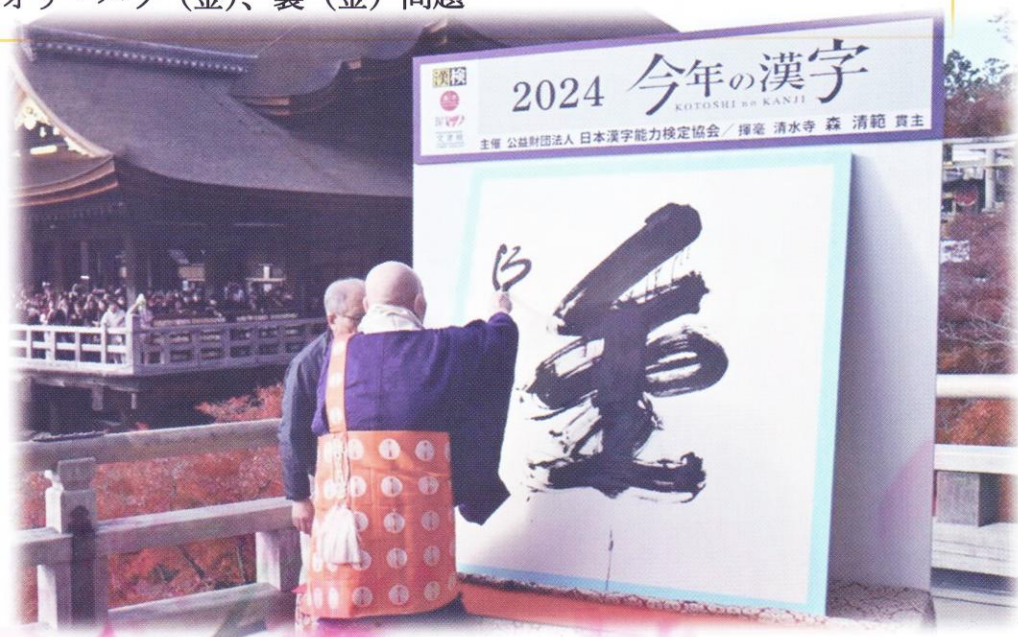 (金)、裏(金)問題
漢検
2024 今年の漢字
KOTOSHI no KANJI
主催 公益財団法人 日本漢字能力検定協会/揮毫 清水寺 森 清範 貫主
金